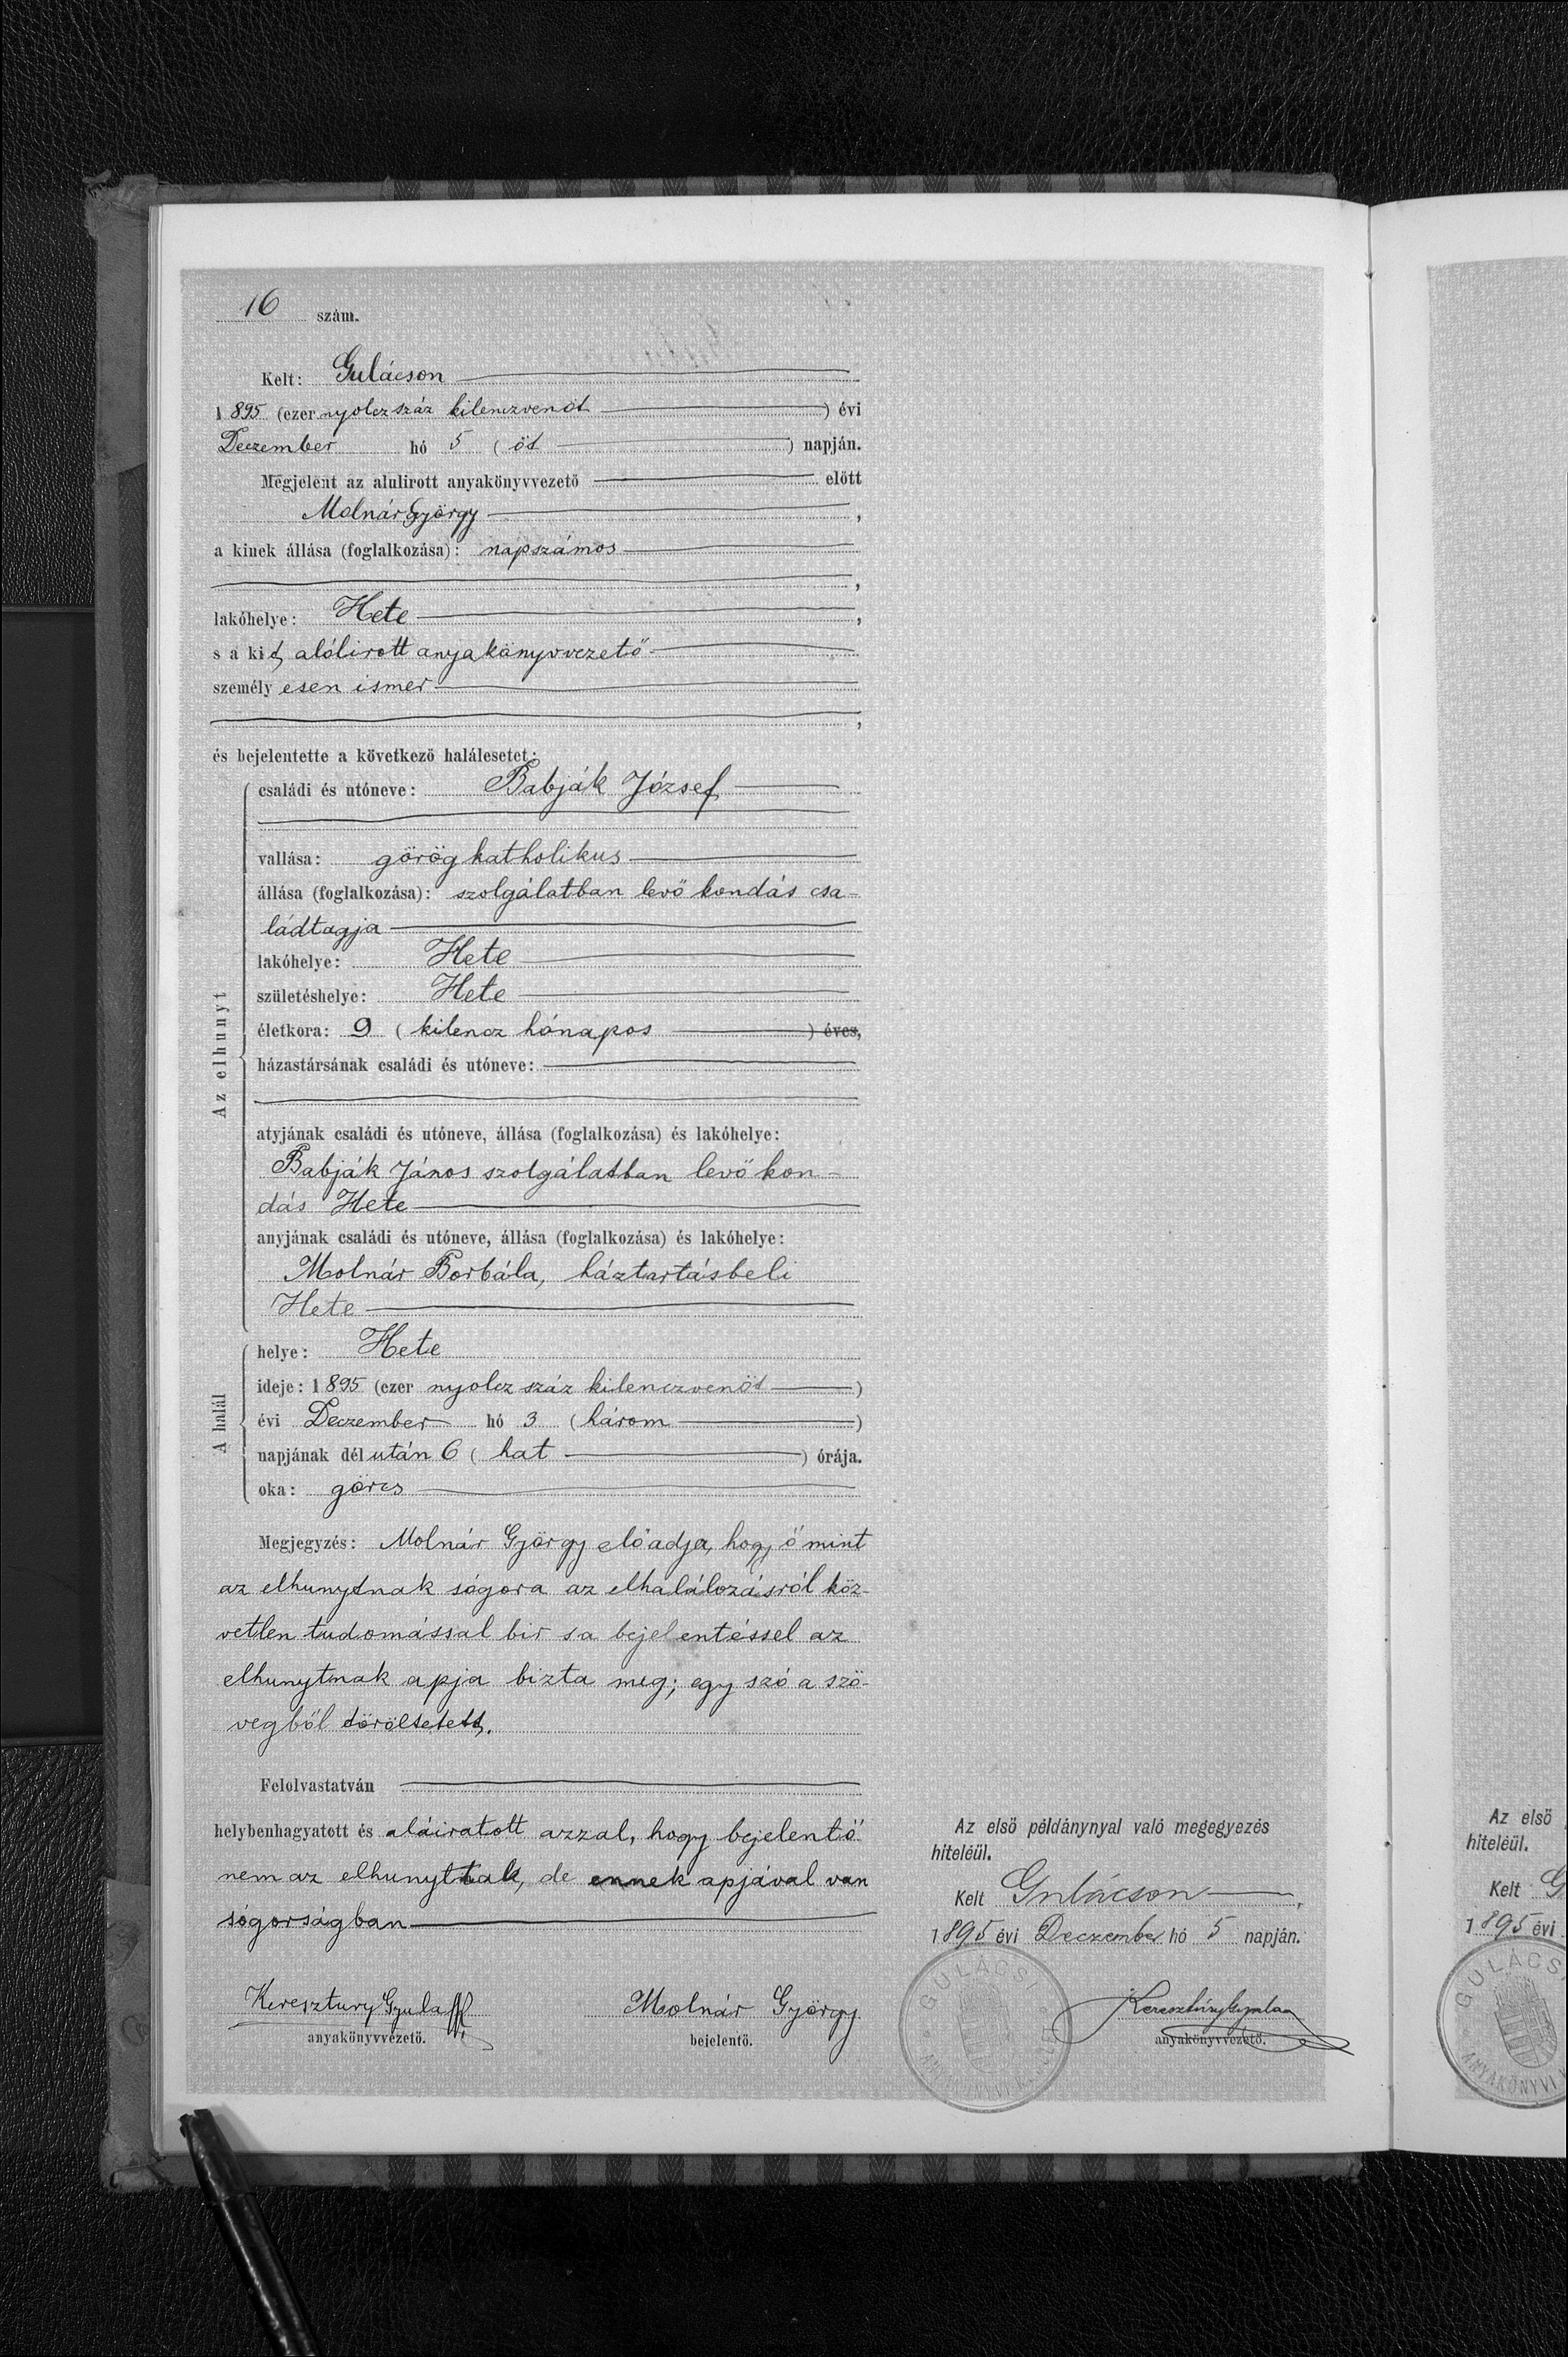 16 szám.
Kelt: Gulácson
1895 (ezer nyolcz száz kilenczvenöt ) évi
Deczember hó 5 ( öt ) napján.
Megjelent az alulirott anyakönyvvezető előtt
Molnár György ,
a kinek állása (foglalkozása): napszámos
,
lakóhelye: Hete ,
s a kit alólirott anyakönyvvezető
személyesen ismer
,
és bejelentette a következő halálesetet:
Az elhunyt
családi és utóneve: Babják József
vallása: görög katholikus
állása (foglalkozása): szolgálatban levő kondás csa-
ládtagja
lakóhelye: Hete
születéshelye: Hete
életkora: 9 ( kilencz hónapos ) éves,
házastársának családi és utóneve:
atyjának családi és utóneve, állása (foglalkozása) és lakóhelye:
Babják János szolgálatban levő kon-
dás Hete
anyjának családi és utóneve, állása (foglalkozása) és lakóhelye:
Molnár Borbála, háztartásbeli
Hete
A halál
helye: Hete
ideje: 1895 (ezer nyolcz száz kilenczvenöt )
évi Deczember hó 3 ( három )
napjának dél után 6 ( hat ) órája.
oka: görcs
Megjegyzés: Molnár György előadja, hogy ő mint
az elhunytnak sógora az elhalálozásról köz-
vetlen tudomással bir s a bejelentéssel az
elhunytnak apja bizta meg; egy szó a szö-
vegből töröltetett.
Felolvastatván
helybenhagyatott és aláiratott azzal, hogy bejelentő
nem az elhunyttal, de ennek apjával van
sógorságban
Keresztury Gyula
anyakönyvvezető.
Molnár György
bejelentő.
Az első példánynyal való megegyezés
hiteléül.
Kelt Gulácson ,
1895 évi Deczember hó 5 napján.
GULÁCSI
ANYAKÖNYVI
Keresztury Gyula
anyakönyvvezető.
Az első
hiteléül.
Kelt G
1895 évi
GULÁCS
ANYAKÖNYVI